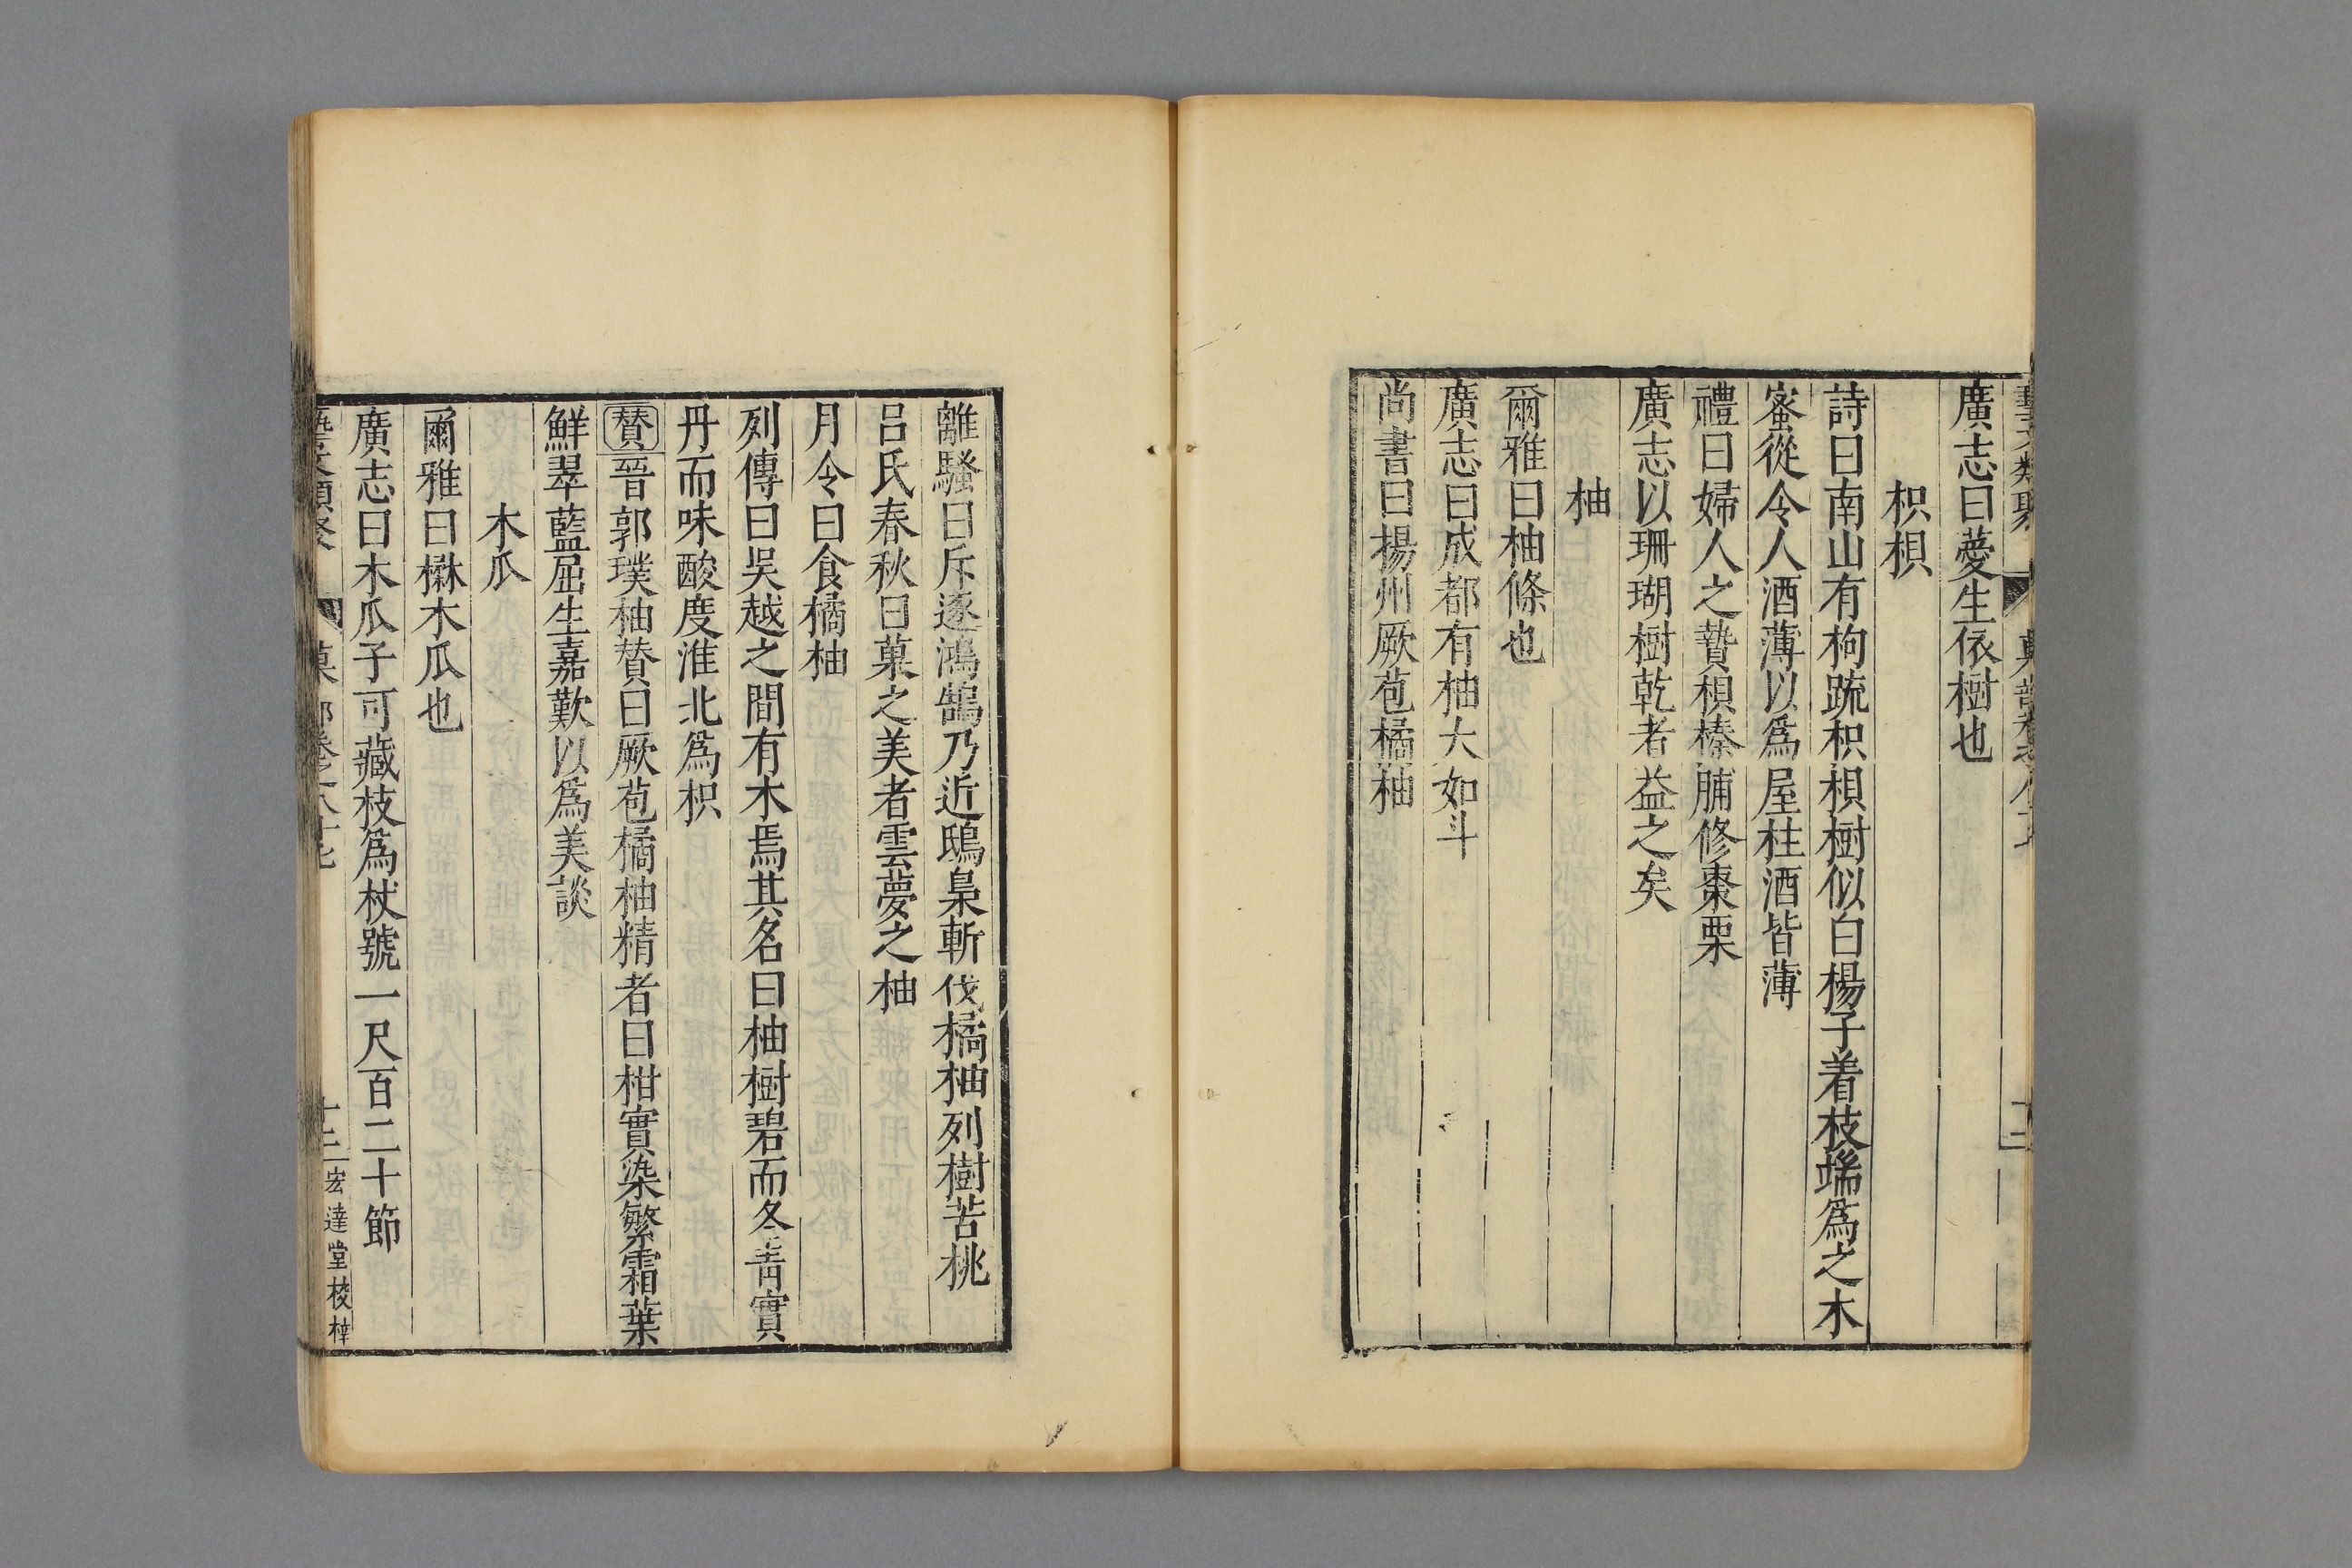 藝文類聚 菓部卷之八十七 十二
廣志曰蘡生依樹也
枳椇
詩曰南山有枸䟽枳椇樹似白楊子着枝端爲之木
蜜從令人酒薄以爲屋柱酒皆薄
禮曰婦人之贄椇榛脯修棗栗
廣志以珊瑚樹乾者益之矣
柚
爾雅曰柚條也
廣志曰成都有柚大如斗
尚書曰揚州厥苞橘柚
離騷曰斥逐鴻鵠乃近鴟梟斬伐橘柚列樹苦桃
吕氏春秋曰菓之美者雲夢之柚
月令曰食橘柚
列傳曰吳越之間有木焉其名曰柚樹碧而冬青實
丹而味酸度淮北爲枳
贊晉郭璞柚贊曰厥苞橘柚精者曰柑實染繁霜葉
鮮翠藍屈生嘉歎以爲美談
木瓜
爾雅曰楙木瓜也
廣志曰木瓜子可藏枝爲杖號一尺百二十節
藝文類聚 菓部卷之八十七 十二 宏達堂校梓